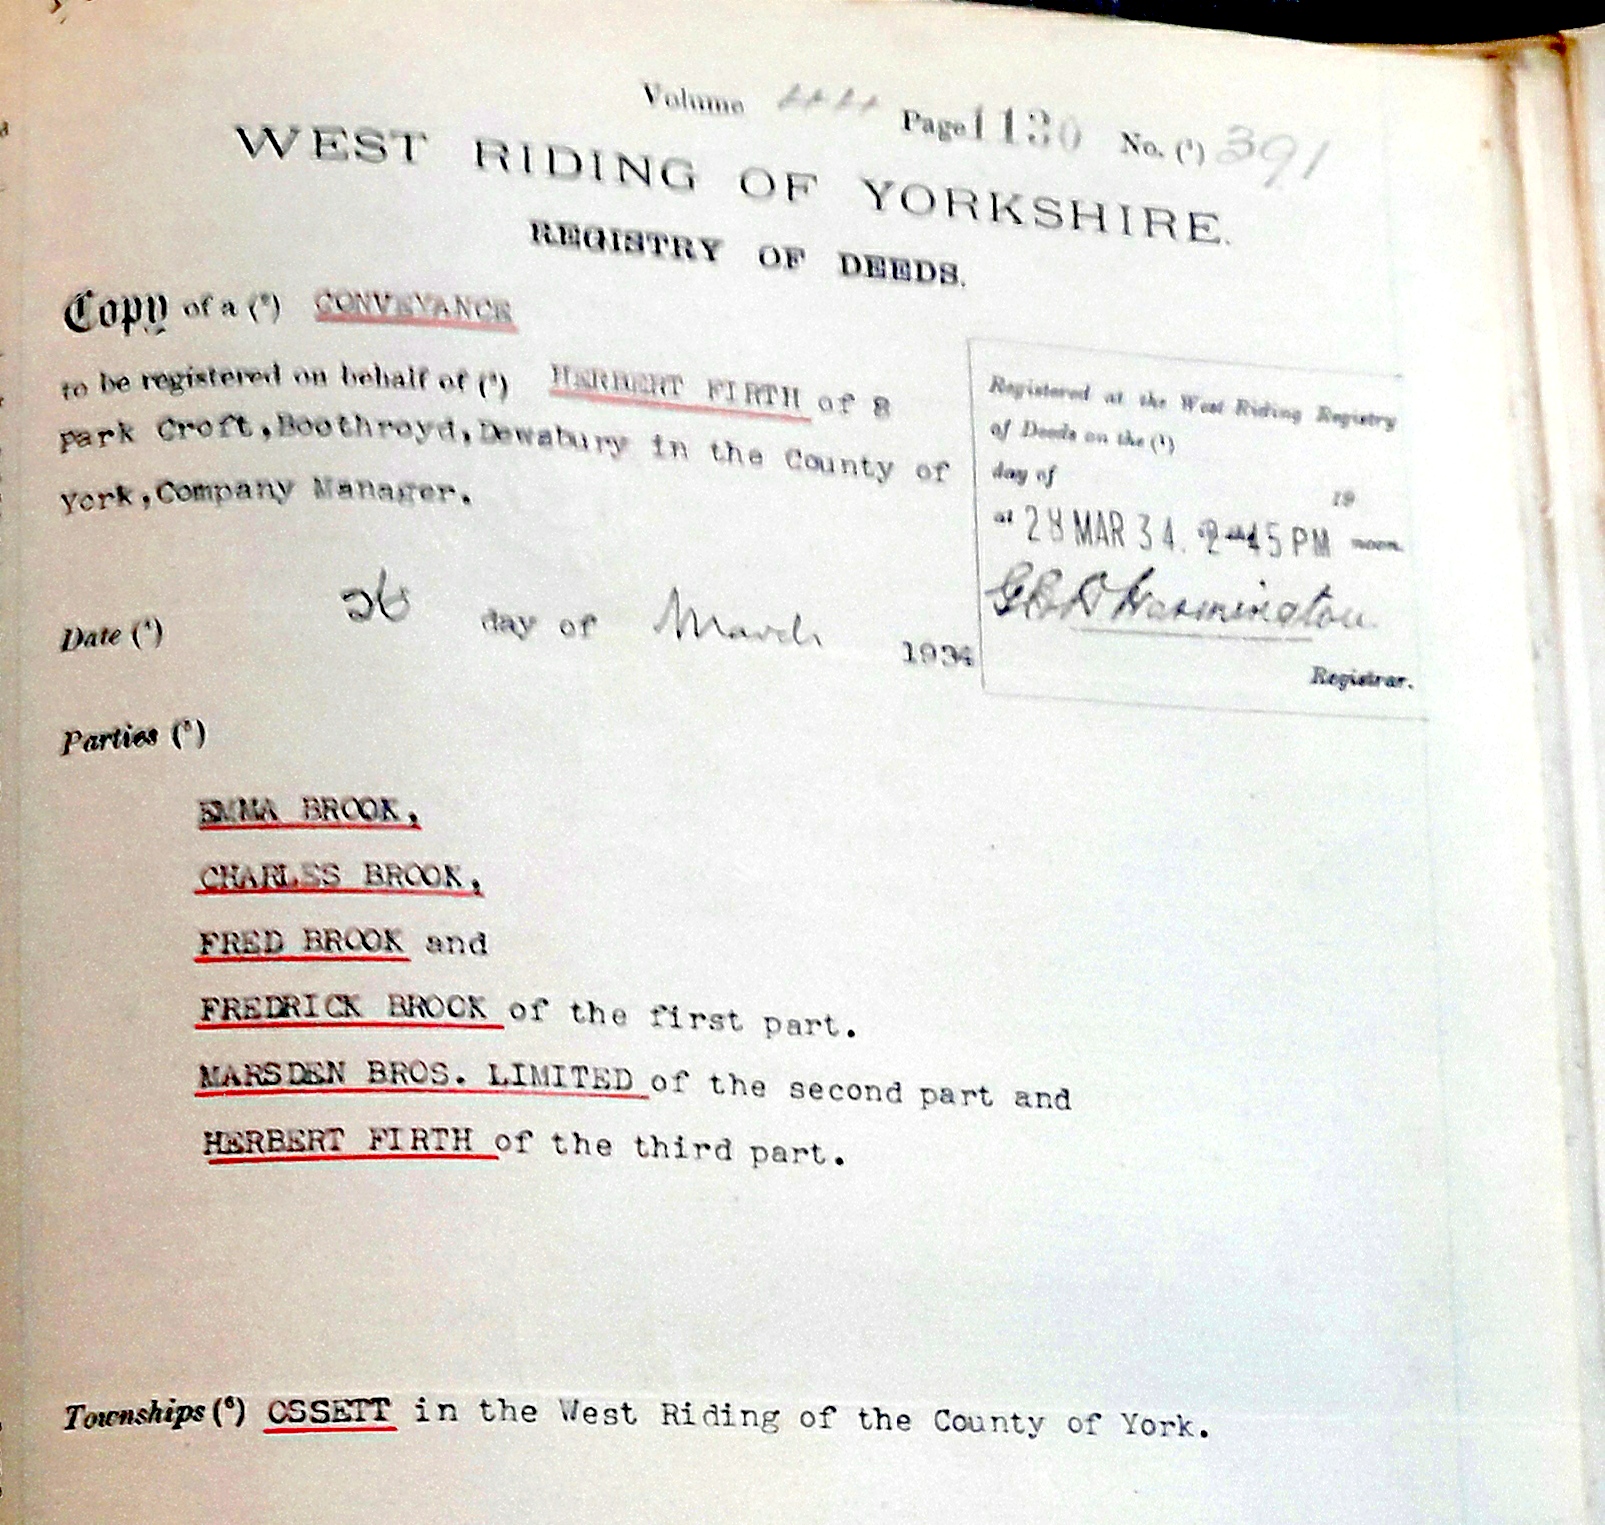 Volume 44 Page 1130 No. (¹) 391
WEST RIDING OF YORKSHIRE.
REGISTRY OF DEEDS.
Copy of a (²) CONVEYANCE
to be registered on behalf of (³) HERBERT FIRTH of 8
park Croft,Boothroyd,Dewsbury in the County of
York,Company Manager.
Registered at the West Riding Registry
of Deeds on the (¹)
day of 19
at 28 MAR 34. 2-45 PM noon.
Registrar.
Date (⁴) 26 day of March 1934
Parties (⁵)
EMMA BROOK,
CHARLES BROOK,
FRED BROOK and
FREDRICK BROOK of the first part.
MARSDEN BROS. LIMITED of the second part and
HERBERT FIRTH of the third part.
Townships (⁶) OSSETT in the West Riding of the County of York.